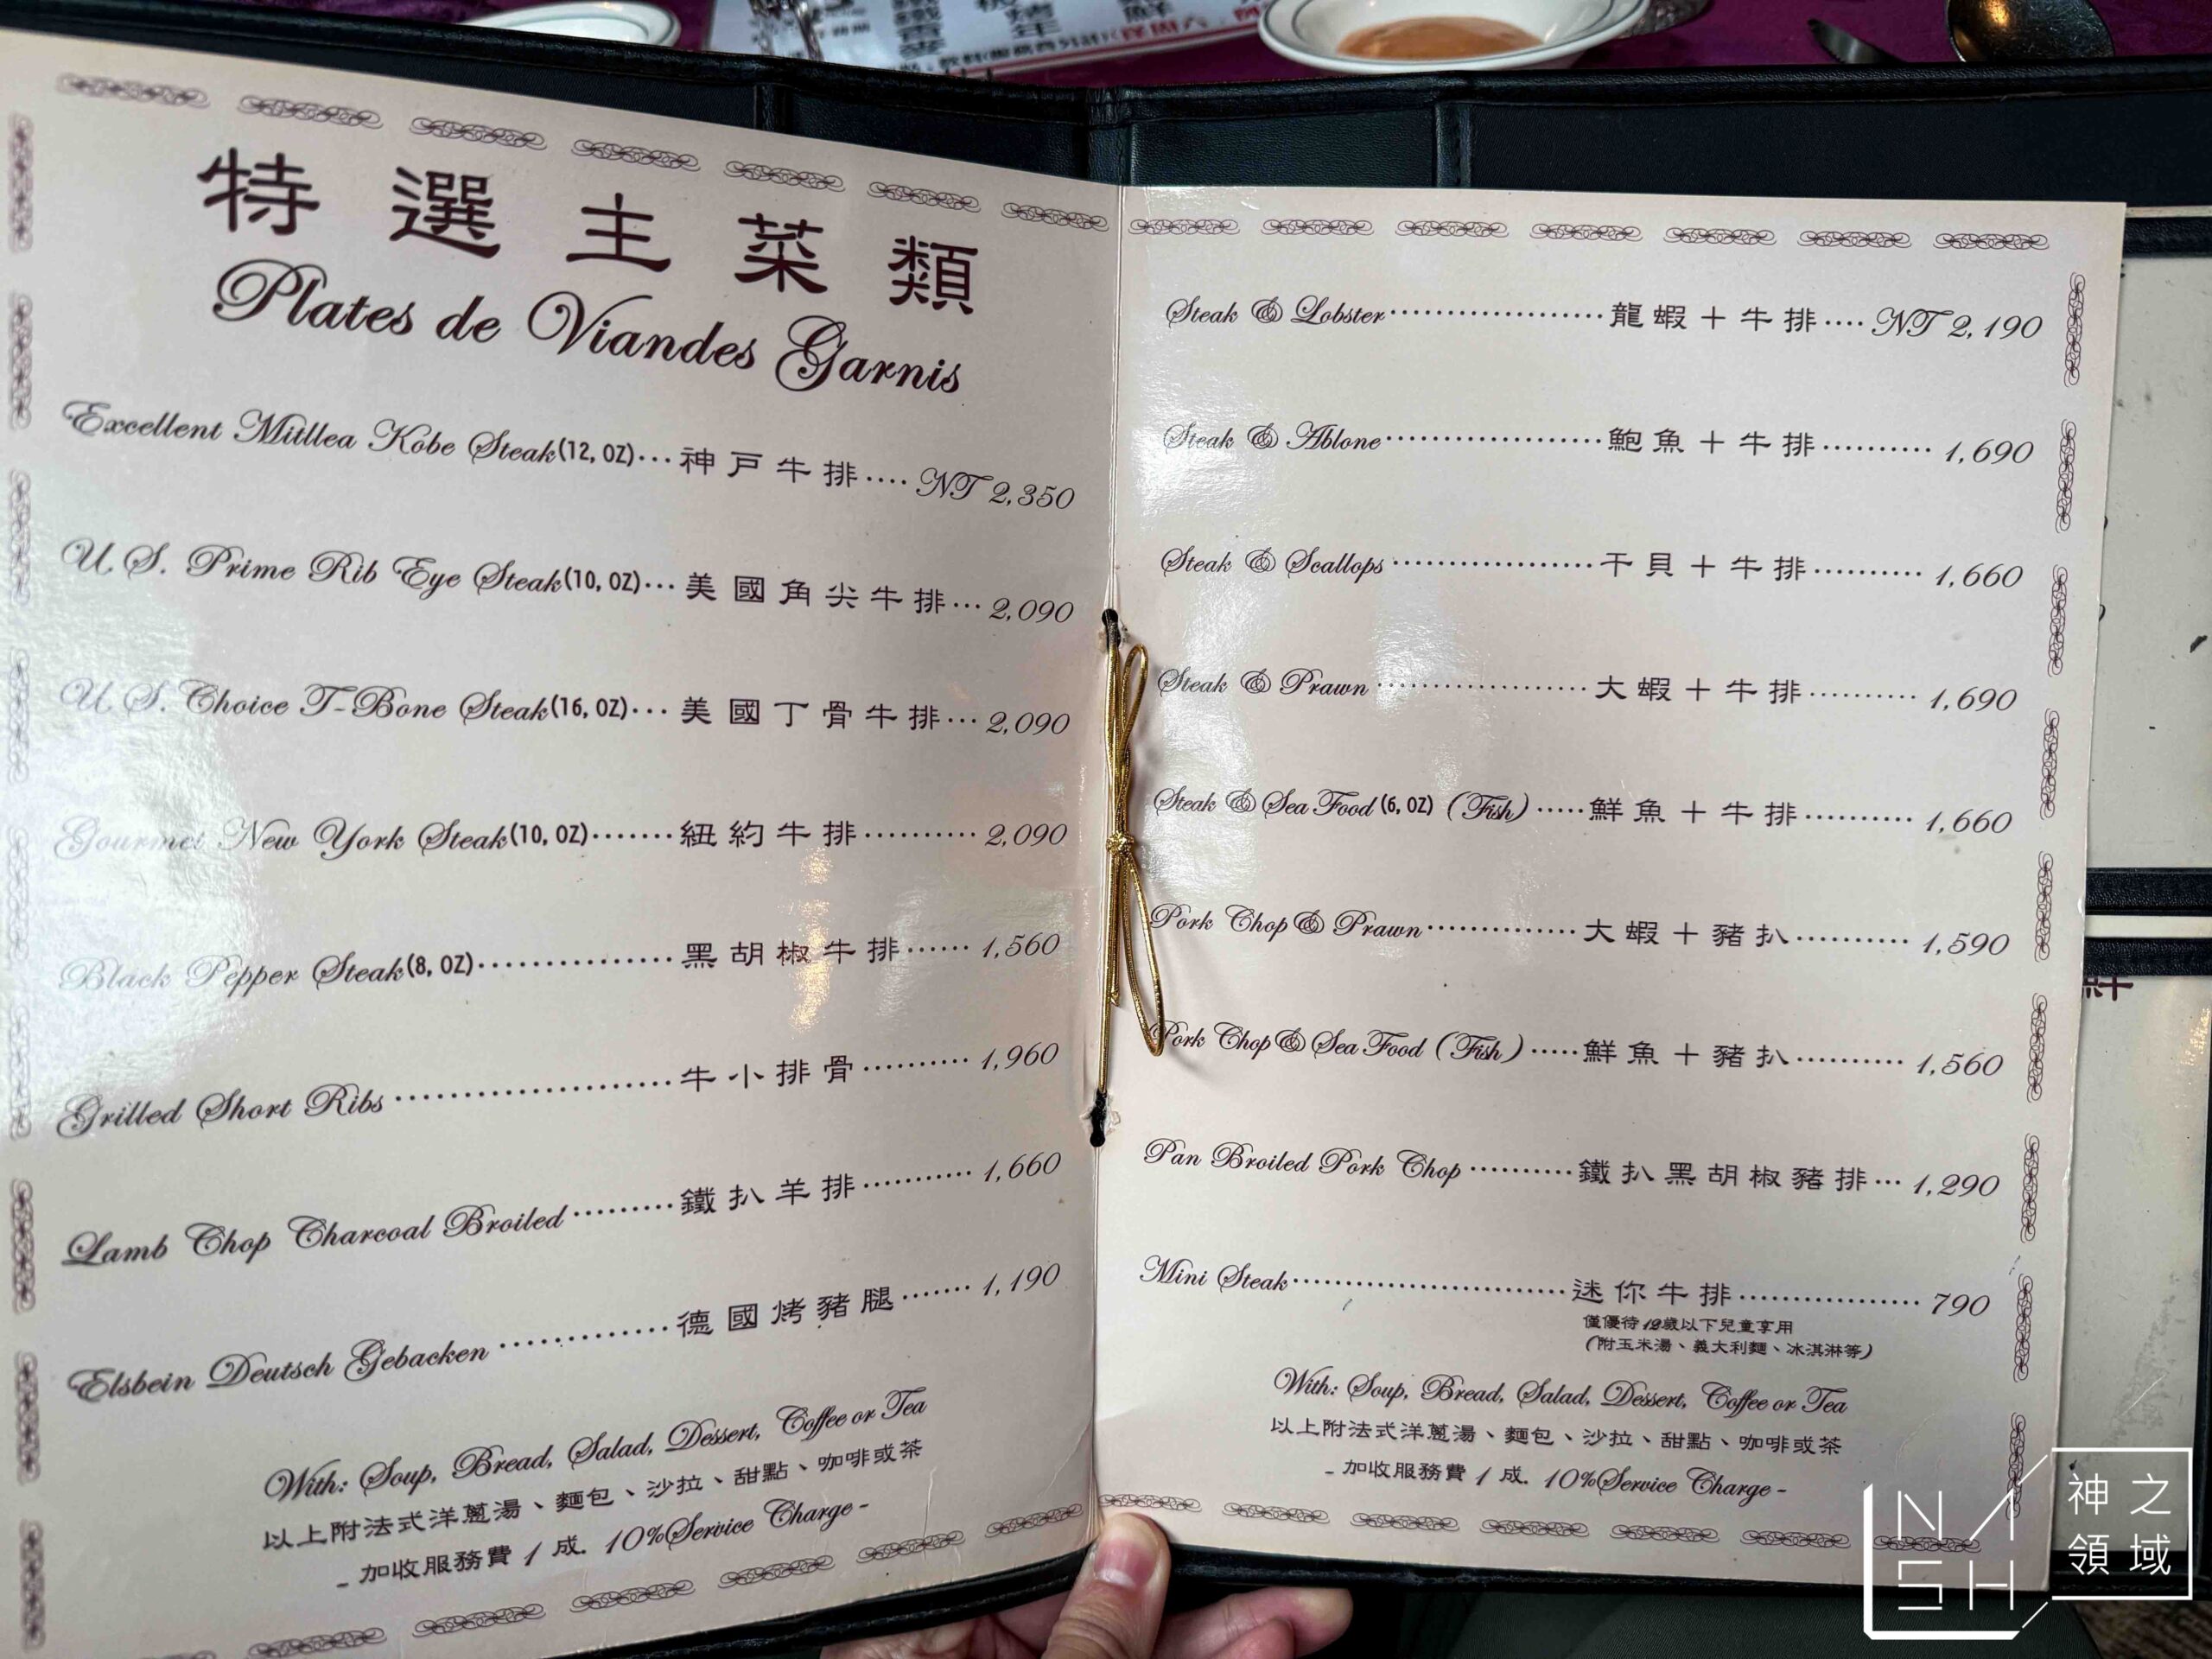 特選主菜類
Plates de Viandes Garnis
Excellent Mitllea Kobe Steak(12, OZ)···神戶牛排····NT 2,350
U.S. Prime Rib Eye Steak(10, OZ)···美國角尖牛排···2,090
U.S. Choice T-Bone Steak(16, OZ)···美國丁骨牛排···2,090
Gourmet New York Steak(10, OZ)·······紐約牛排··········2,090
Black Pepper Steak(8, OZ)···············黑胡椒牛排······1,560
Grilled Short Ribs·····················牛小排骨··········1,960
Lamb Chop Charcoal Broiled·········鐵扒羊排···········1,660
Elsbein Deutsch Gebacken·············德國烤豬腿·······1,190
With: Soup, Bread, Salad, Dessert, Coffee or Tea
以上附法式洋蔥湯、麵包、沙拉、甜點、咖啡或茶
- 加收服務費 1 成. 10%Service Charge -
Steak & Lobster···················龍蝦+牛排····NT 2,190
Steak & Ablone···················鮑魚+牛排··········1,690
Steak & Scallops··················干貝+牛排··········1,660
Steak & Prawn···················大蝦+牛排··········1,690
Steak & Sea Food (6, OZ) (Fish)·····鮮魚+牛排··········1,660
Pork Chop & Prawn··············大蝦+豬扒··········1,590
Pork Chop & Sea Food (Fish)·····鮮魚+豬扒··········1,560
Pan Broiled Pork Chop··········鐵扒黑胡椒豬排···1,290
Mini Steak·························迷你牛排·················790
僅優待12歲以下兒童享用
(附玉米湯、義大利麵、冰淇淋等)
With: Soup, Bread, Salad, Dessert, Coffee or Tea
以上附法式洋蔥湯、麵包、沙拉、甜點、咖啡或茶
- 加收服務費 1 成. 10%Service Charge -
NASH
神之
領域